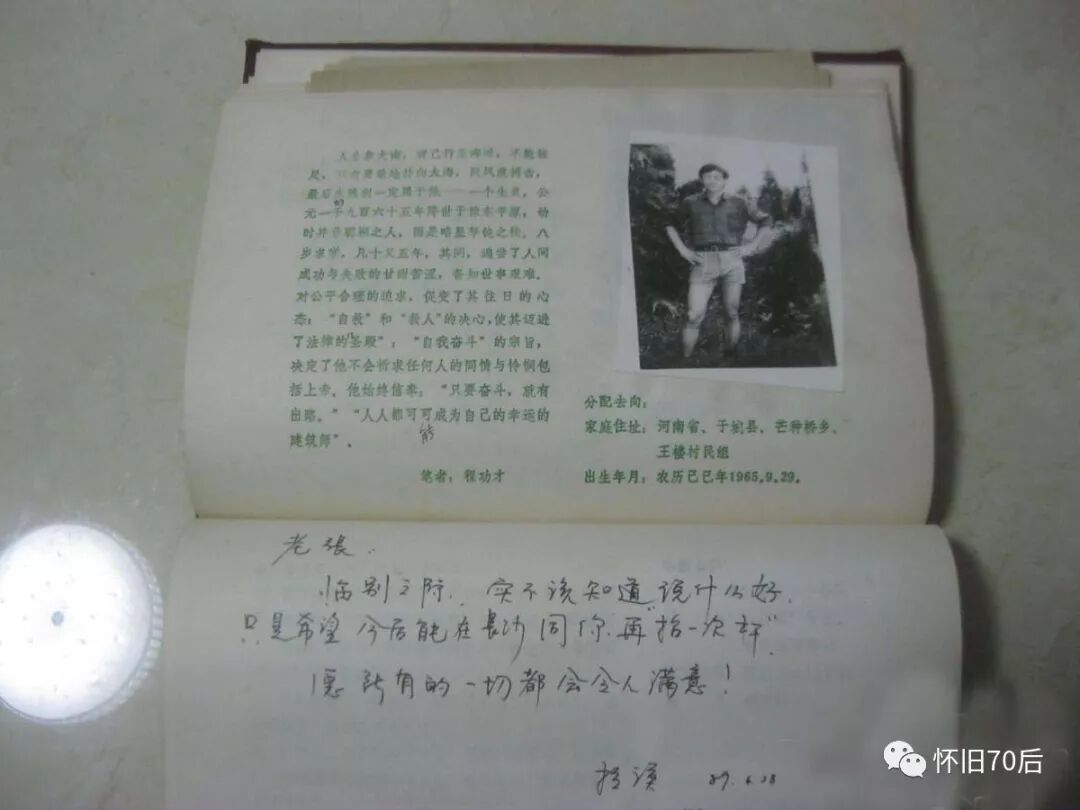 人生象大海，
尺，
最后的胜利一定属于你——一个生灵，公
元一千九百六十五年降世于豫东平原，幼
时并非聪颖之人，而是略显华钝之徒，八
步求学，凡十又五年，其间，遍尝了人间
成功与失败的甘甜苦涩，备知世事艰难。
对公平合理的追求，促变了其往日的心
态；“自救”和“救人”的决心，使其迈进
了法律的圣殿”；“自我奋斗”的宗旨，
决定了他不会祈求任何人的同情与怜悯包
括上帝。他始终信奉：“只要奋斗，就有
出路。”“人人都可可成为自己的幸运的
能
建筑师”。
笔者：程功才
分配去向：
家庭住址：河南省、县、芒种桥乡、
王楼村民组
出生年月：农历己巳年1965.9.29.
老張：
临别之际，实不该知道说什么好，
只是希望今后能在長沙同你再“抬一次杠”
愿所有的一切都会令人满意！
89.6.28
怀旧70后